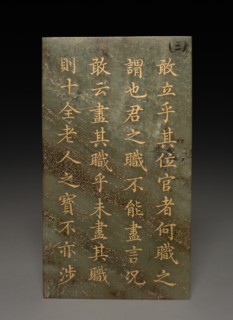 (二)
敢立乎其位官者何職之
謂也君之職不能盡言况
敢云盡其職乎未盡其職
則十全老人之寶不亦涉